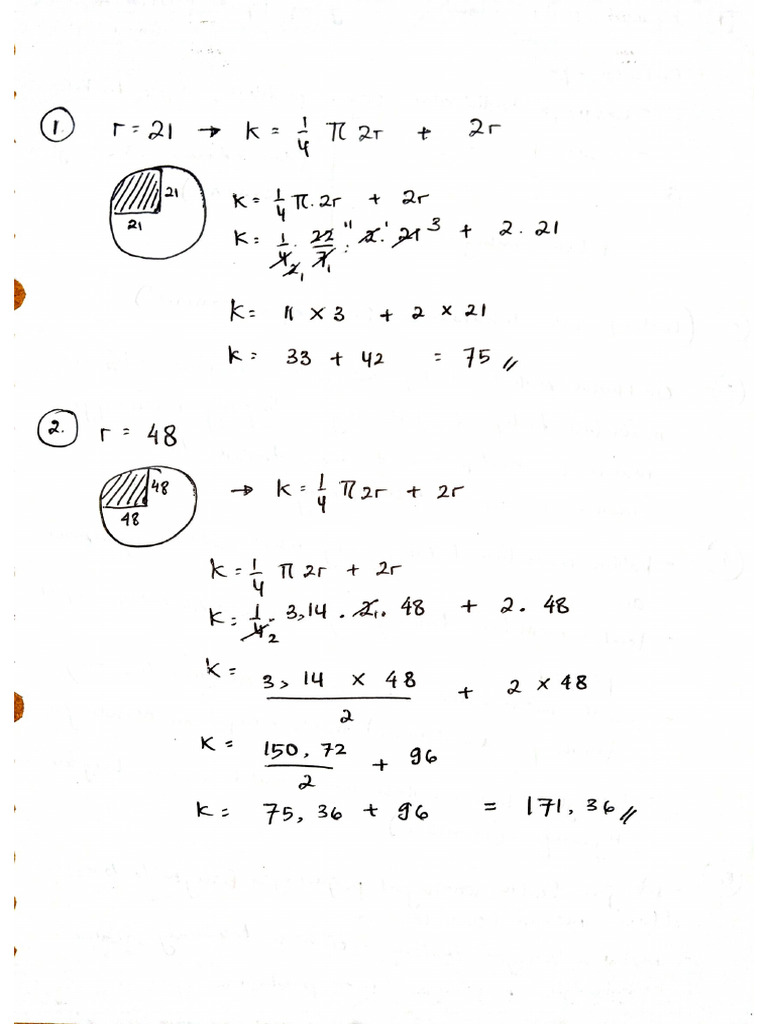 1. r = 21 → k = 1/4 π 2r + 2r
21
21
k = 1/4 π . 2r + 2r
k = 1/4 2 1 . 22/7 11 1 . 2 1 . 21 3 + 2 . 21
k = 11 × 3 + 2 × 21
k = 33 + 42 = 75 //
2. r = 48
48
48
→ k = 1/4 π 2r + 2r
k = 1/4 π 2r + 2r
k = 1/4 2 . 3,14 . 2 1 . 48 + 2 . 48
k = 3,14 × 48 / 2 + 2 × 48
k = 150,72 / 2 + 96
k = 75,36 + 96 = 171,36 //